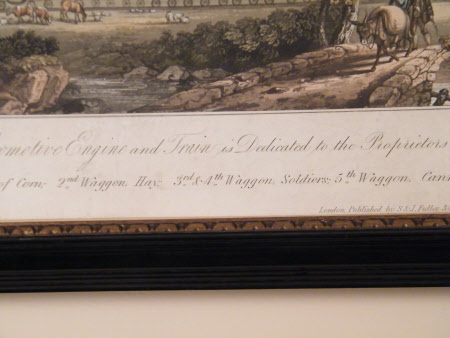 omotive Engine and Train is Dedicated to the Proprietors
of Corn; 2nd Waggon, Hay; 3rd & 4th Waggon, Soldiers; 5th Waggon, Cann
London, Published by S & J Fuller